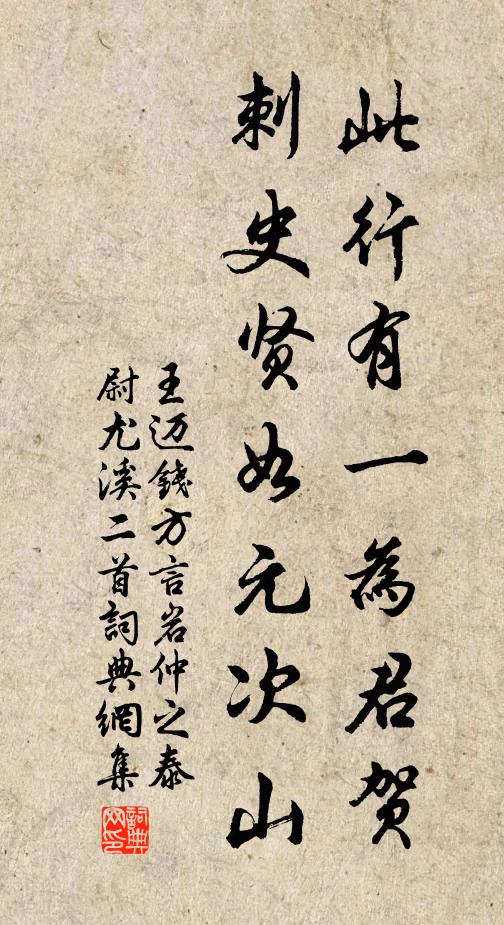 此行有一為君贺
刺史贤如元次山
王迈錢方言岩仲之泰
尉尤溪二首詞典網集
詞典網印